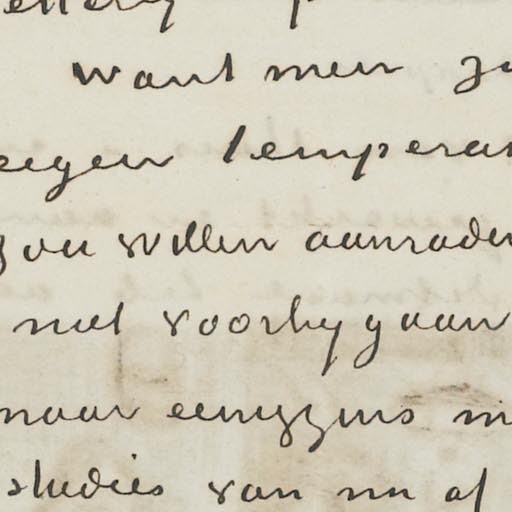 want men zu
eigen temperam
zou willen aanraden
niet voorbygaan
maar eenigzins in
studies van nu af